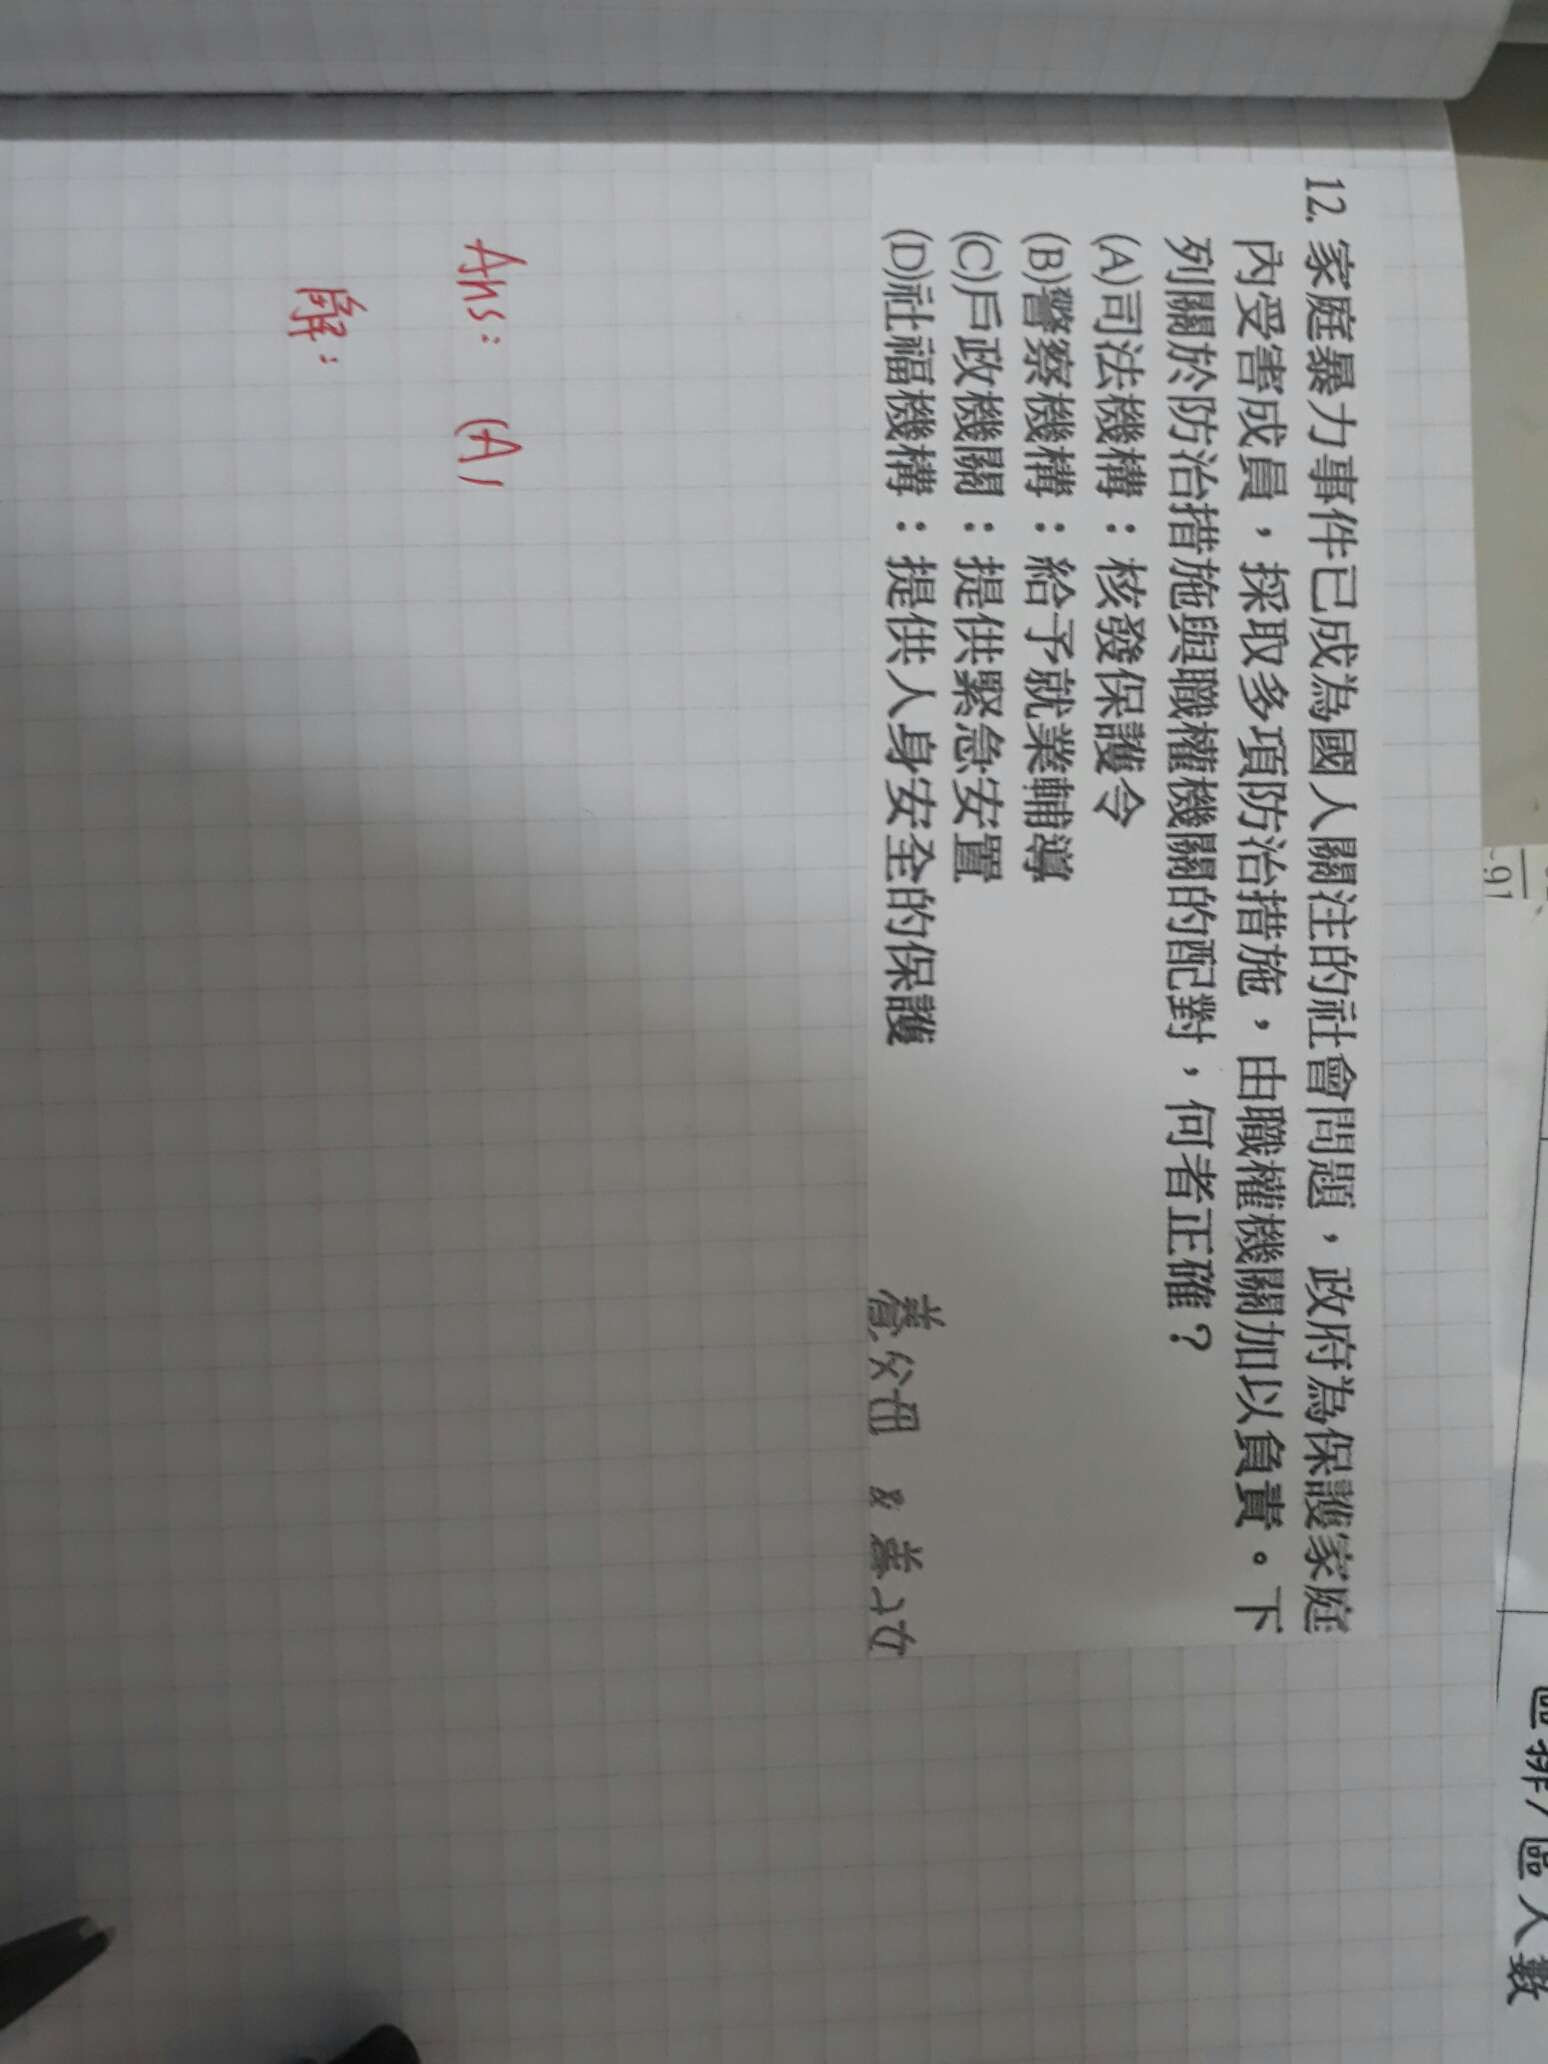 12. 家庭暴力事件已成為國人關注的社會問題，政府為保護家庭
內受害成員，採取多項防治措施，由職權機關加以負責。下
列關於防治措施與職權機關的配對，何者正確？
(A)司法機構：核發保護令
(B)警察機構：給予就業輔導
(C)戶政機關：提供緊急安置
(D)社福機構：提供人身安全的保護
養父母 & 養子女
Ans: (A)
解:
91
區排/區人數